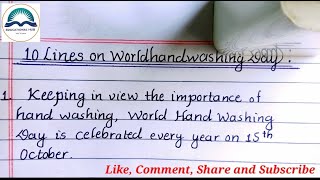 10 Lines on Worldhandwashing Day :
1. Keeping in view the importance of
hand washing, World Hand Washing
Day is celebrated every year on 15th
October.
Like, Comment, Share and Subscribe